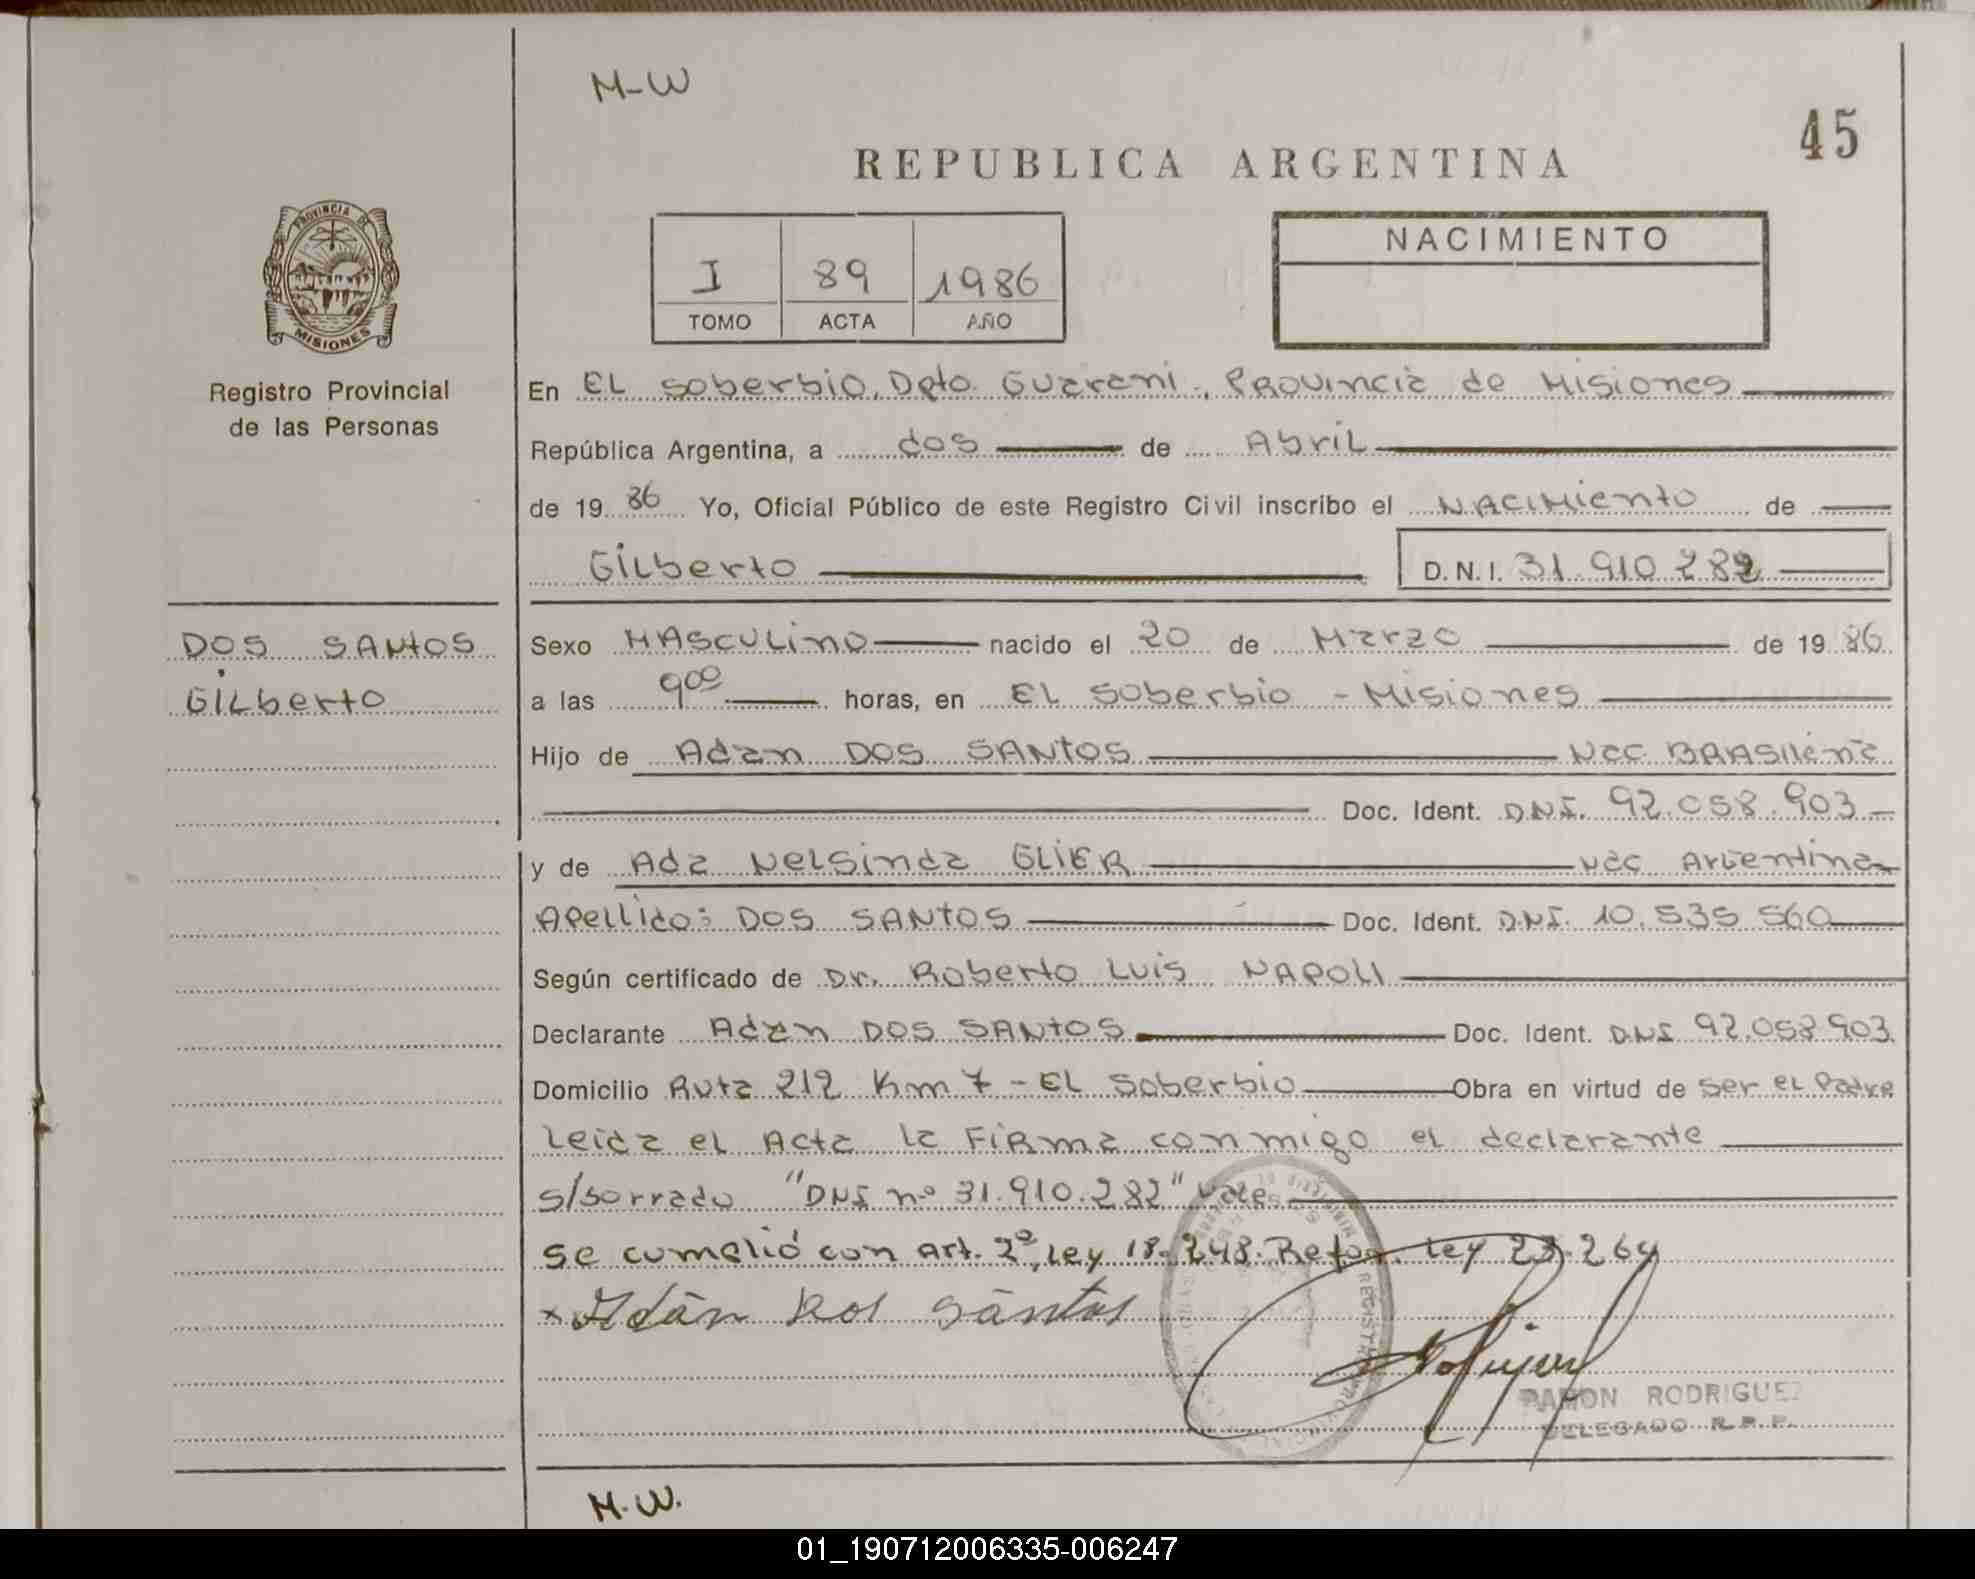 M-W
45
REPUBLICA ARGENTINA
PROVINCIA DE
MISIONES
I 89 1986
TOMO ACTA AÑO
NACIMIENTO
Registro Provincial
de las Personas
En EL Soberbio, Dpto. Guarani, Provincia de Misiones
República Argentina, a dos de Abril
de 19 86 Yo, Oficial Público de este Registro Civil inscribo el NACIMIENTO de
Gilberto D.N.I. 31.910.282
DOS SANTOS
Gilberto
Sexo MASCULINO nacido el 20 de Marzo de 19 86
a las 9 00 horas, en EL Soberbio - Misiones
Hijo de Adan DOS SANTOS Nac BRASILEÑA
Doc. Ident. DNI. 92.058.903
y de Ada Nelsinda GLIER Nac Argentina
Apellido: DOS SANTOS Doc. Ident. DNI. 10.535.560
Según certificado de Dr. Roberto Luis NAPOLI
Declarante Adan DOS SANTOS Doc. Ident. DNI 92.058.903
Domicilio Ruta 212 Km 7 - EL Soberbio Obra en virtud de ser el Padre
Leida el Acta la Firma conmigo el declarante
s/borrado "DNI nº 31.910.282" Vale
se cumplió con Art. 2º, Ley 18.248. Refor. Ley 23.264
x Adán Dos Santos
REGISTRO PROVINCIAL
RAMON RODRIGUEZ
DELEGADO R.P.P.
M.W.
01_190712006335-006247